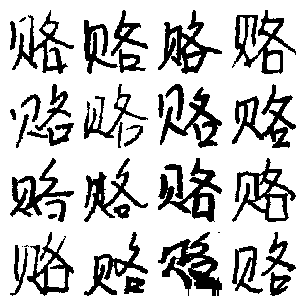 赂赂赂赂
赂赂赂赂
赂赂赂赂
赂赂赂赂